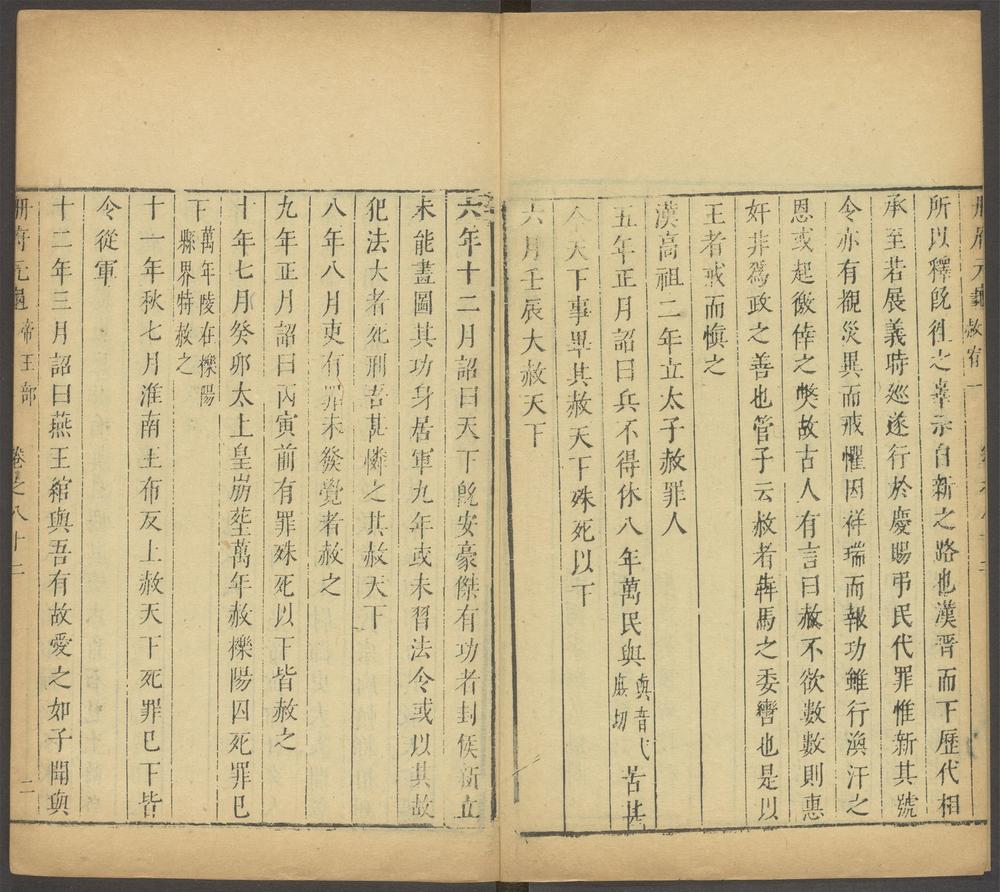 冊府元龜 赦宥一
所以釋旣徃之辜示自新之路也漢晉而下歷代相
承至若展義時廵遂行於慶賜弔民代罪惟新其號
令亦有覩災異而戒懼因祥瑞而報功雖行渙汗之
恩或起徼倖之獘故古人有言曰赦不欲數數則惠
奸非爲政之善也管子云赦者犇馬之委轡也是以
王者戒而愼之
漢高祖二年立太子赦罪人
五年正月詔曰兵不得休八年萬民與與音弋庶切苦甚
今天下事畢其赦天下殊死以下
六月壬辰大赦天下
六年十二月詔曰天下旣安豪傑有功者封侯新立
未能盡圖其功身居軍九年或未習法令或以其故
犯法大者死刑吾甚憐之其赦天下
八年八月吏有罪未發覺者赦之
九年正月詔曰丙寅前有罪殊死以下皆赦之
十年七月癸卯太上皇崩塟萬年赦櫟陽囚死罪巳
下萬年陵在櫟陽縣界特赦之
十一年秋七月淮南王布反上赦天下死罪巳下皆
令從軍
十二年三月詔曰燕王綰與吾有故愛之如子聞與
冊府元龜 帝王部 卷之八十二 二